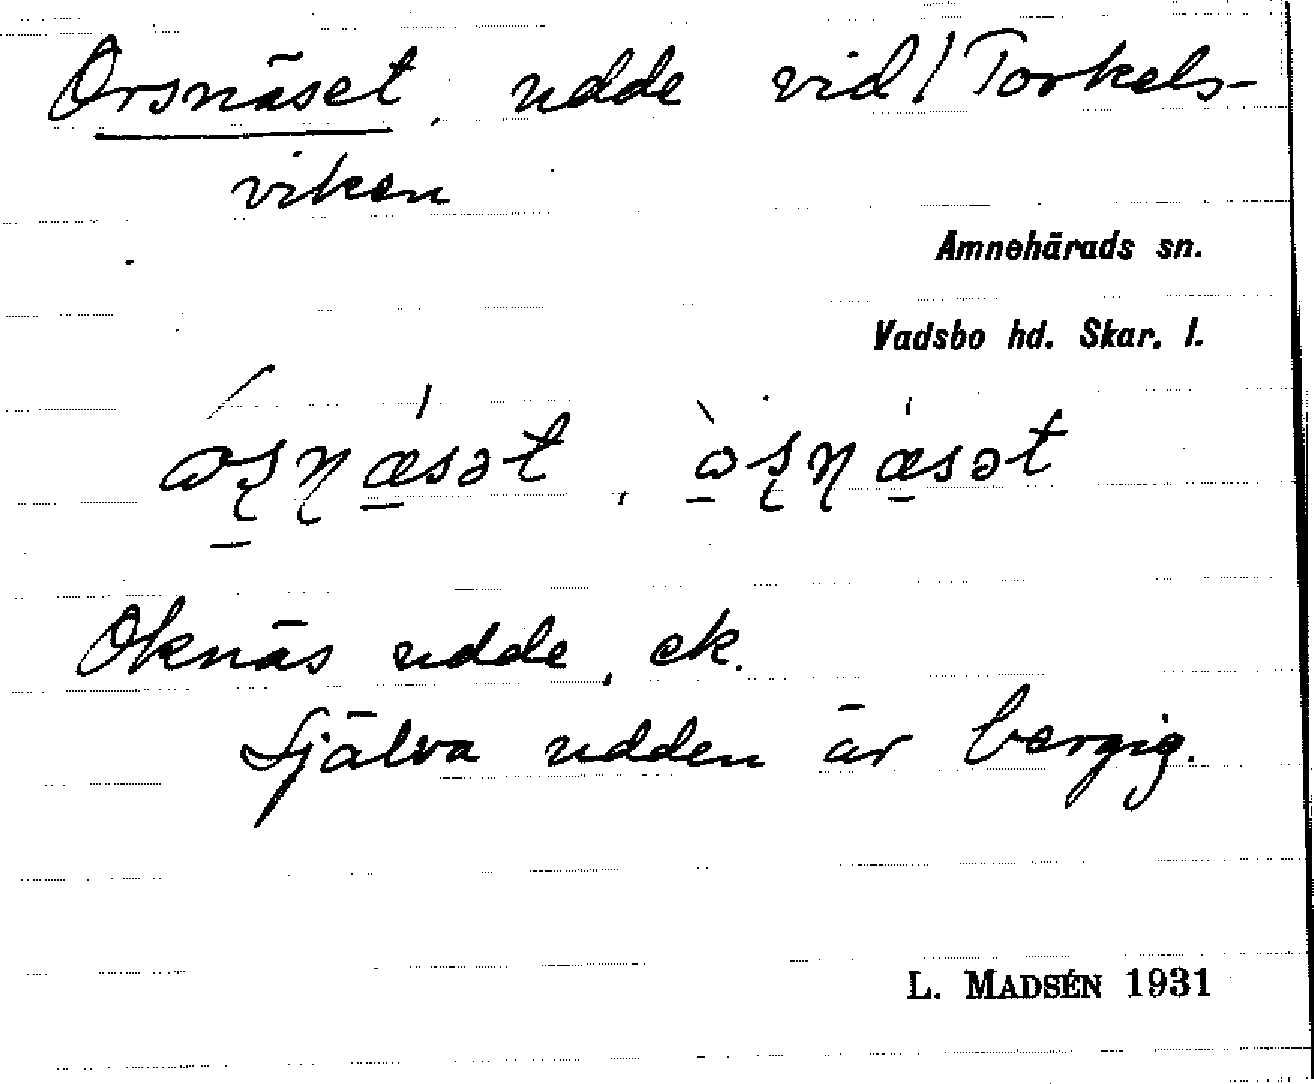 Orsnäset, udde vid / Torkels-
viken
Amnehärads sn.
Vadsbo hd. Skar. l.
Oknäs udde, ek.
Själva udden är bergig.
L. MADSÉN 1931